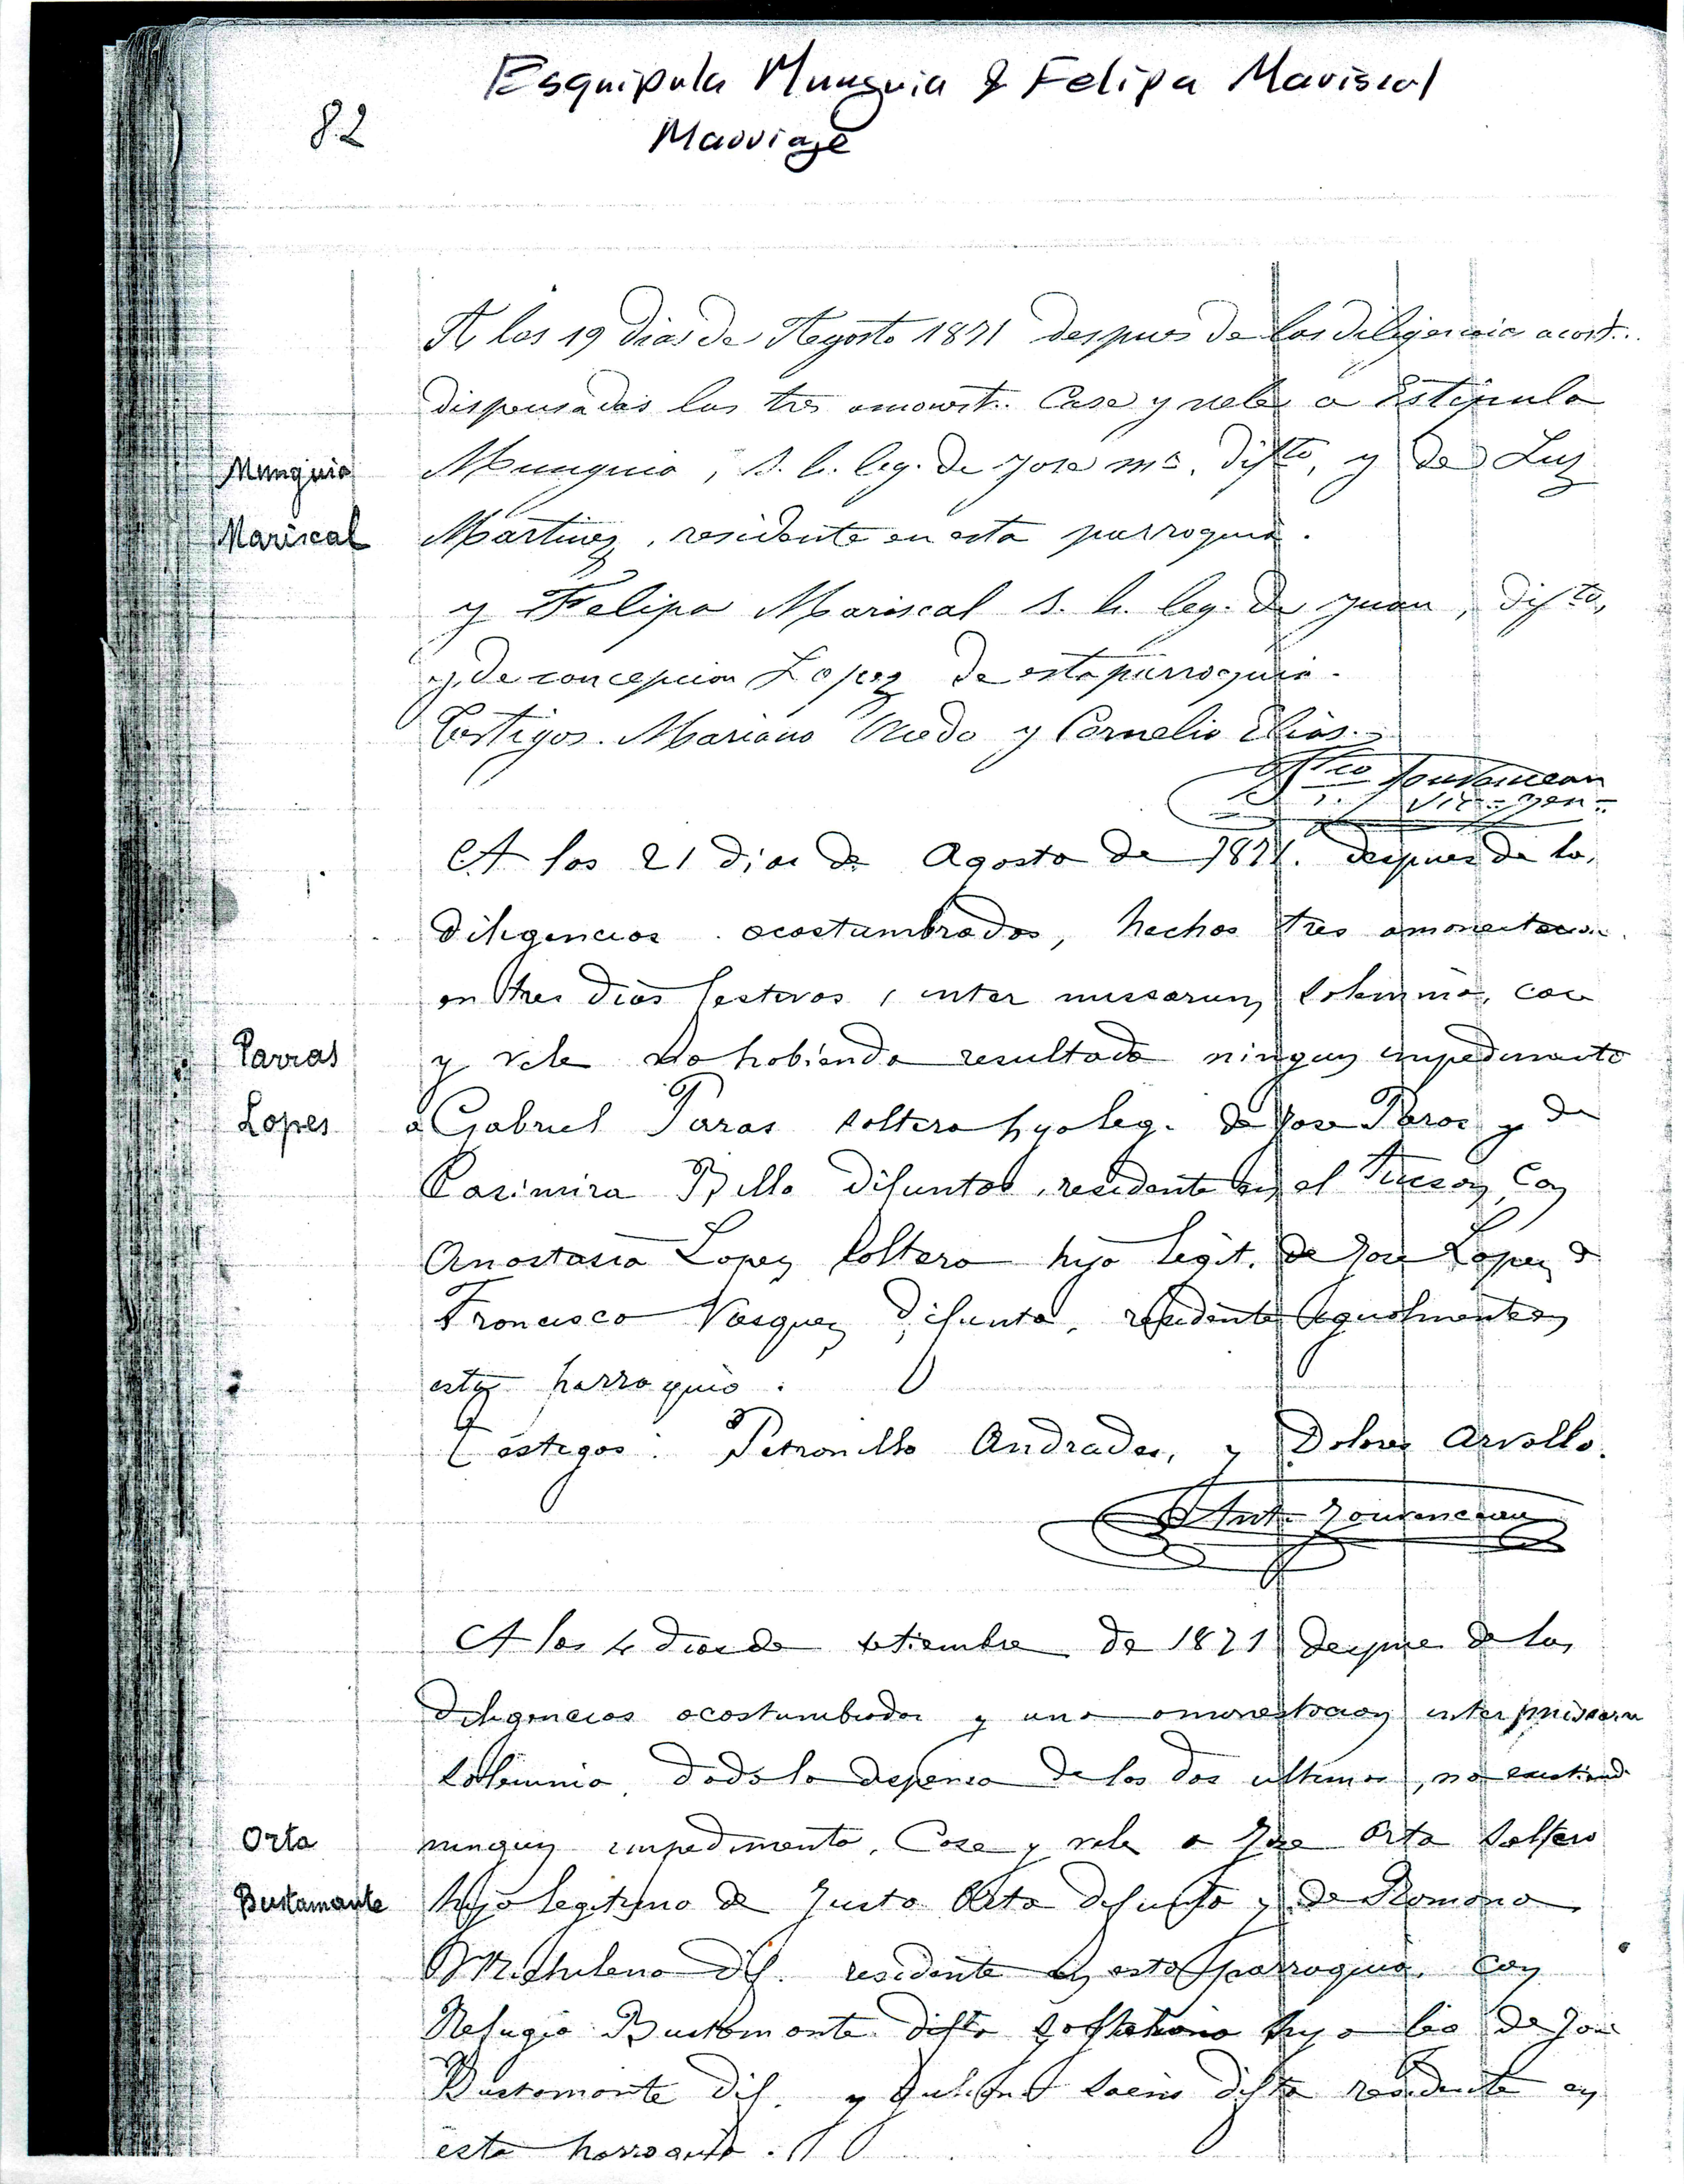 Esquipula Munguia & Felipa Mariscal
Marriage
82
A los 19 dias de Agosto 1871 despues de las diligencia acost..
dispensadas las tres amonest.. Case y vele a Estipula
Munguia
Munguia, s. h. leg. de Jose Ma. difto, y de Luz
Mariscal
Martinez, residente en esta parroquia.
y Felipa Mariscal s. h. leg. de Juan, difto,
y de concepcion Lopez de esta parroquia.
Testigos. Mariano y Cornelio Elias.
Jouvenceau
Vic. gen.
A los 21 dias de Agosto de 1871. despues de la,
diligencias acostumbradas, hechas tres amonestacion.
en tres dias festivos, inter missarum solemnia, case
Parras
y vele no habiendo resultado ningun impedimento
Lopes
a Gabriel Paras soltero hijo leg. de Jose Paras y de
Casimira Bello difuntos, residente en el Tucson, con
Anastasia Lopez soltera hija legit. de Jose Lopez &
Francisca Vasquez difunta, residente igualmente en
esta parroquia.
Testigos: Petronillo Andrades, y Dolores Arvallo.
Ant. Jouvenceau
A los 4 dias de setiembre de 1871 despues de las
diligencias acostumbradas y una amonestacion inter missarum
solemnia, dada la dispensa de los dos ultimas, no existiend
Orta
ningun impedimento, Case y vele a Jose Orta soltero
Bustamante
hijo legitimo de Justo Orta difunto y de Romona
dif. residente en esta parroquia, con
Refugio Bustamonte difta hija leg de Jose
Bustamonte dif. y difta residente en
esta parroquia.